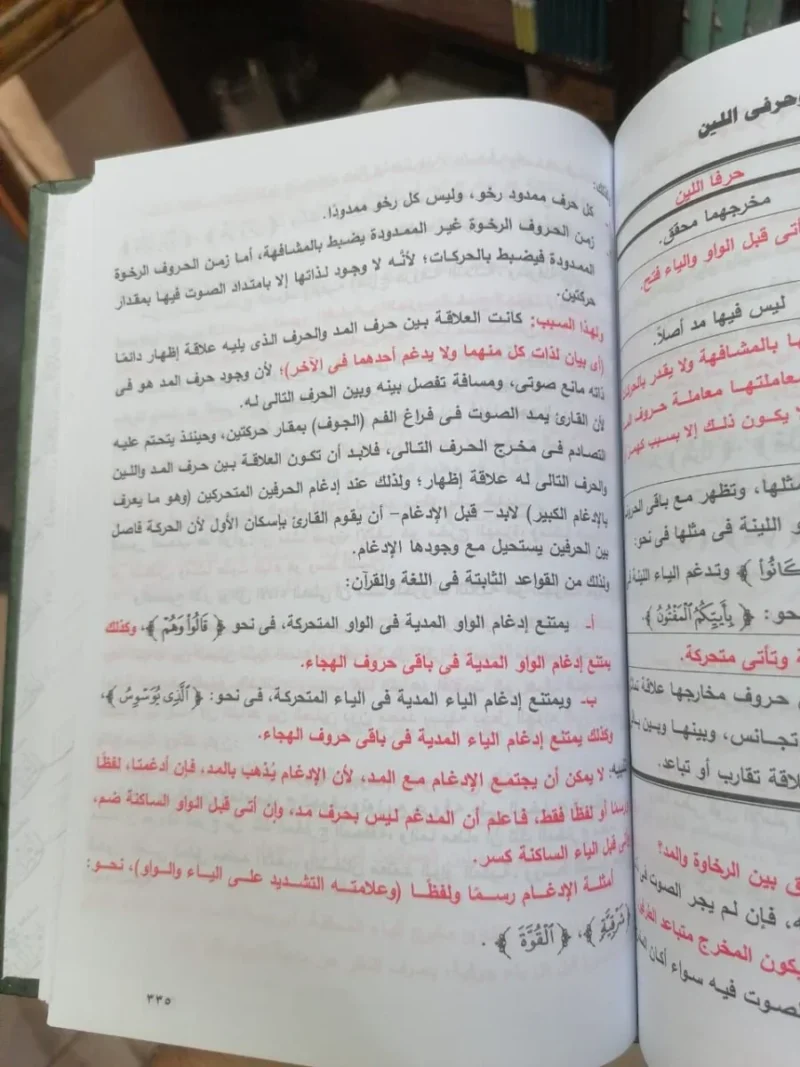 وحرفى اللين
حرفا اللين
مخرجهما محقق.
أتى قبل الواو والياء فتح.
ليس فيها مد أصلاً.
ها بالمشافهة ولا يقدر بالحركات
معاملتها معاملة حروف
لا يكون ذلك إلا بسبب كهمز
مثلها، وتظهر مع باقى
و اللينة فى مثلها فى نحو:
كَانُواْ ﴾ وتدغم الياء اللينة فى
نحو: ﴿ بِأَييِّكُمُ ٱلْمَفْتُونُ ﴾.
ة وتأتى متحركة.
حروف مخارجها علاقة
تجانس، وبينها وبين
علاقة تقارب أو تباعد.
ق بين الرخاوة والمد؟
ه، فإن لم يجر الصوت فى
يكون المخرج متباعد
لصوت فيه سواء أكان
كل حرف ممدود رخو، وليس كل رخو ممدودًا.
زمن الحروف الرخوة غير الممدودة يضبط بالمشافهة، أما زمن الحروف الرخوة
الممدودة فيضبط بالحركات؛ لأنَّه لا وجود لذاتها إلا بامتداد الصوت فيها بمقدار
حركتين.
ولهذا السبب: كانت العلاقة بين حرف المد والحرف الذى يليه علاقة إظهار دائمًا
(أى بيان لذات كل منهما ولا يدغم أحدهما فى الآخر)؛ لأن وجود حرف المد هو فى
ذاته مانع صوتى، ومسافة تفصل بينه وبين الحرف التالى له.
لأن القارئ يمد الصوت فى فراغ الفم (الجوف) بمقار حركتين، وحينئذ يتحتم عليه
التصادم فى مخرج الحرف التالى، فلابد أن تكون العلاقة بين حرف المد واللين
والحرف التالى له علاقة إظهار؛ ولذلك عند إدغام الحرفين المتحركين (وهو ما يعرف
بالإدغام الكبير) لابد- قبل الإدغام- أن يقوم القارئ بإسكان الأول لأن الحركة فاصل
بين الحرفين يستحيل مع وجودها الإدغام.
ولذلك من القواعد الثابتة فى اللغة والقرآن:
أ- يمتنع إدغام الواو المدية فى الواو المتحركة، فى نحو ﴿ قَالُواْ وَهُمْ ﴾، وكذلك
يمتنع إدغام الواو المدية فى باقى حروف الهجاء.
ب- ويمتنع إدغام الياء المدية فى الياء المتحركة، فى نحو: ﴿ ٱلَّذِى يُوَسْوِسُ ﴾،
وكذلك يمتنع إدغام الياء المدية فى باقى حروف الهجاء.
تنبيه: لا يمكن أن يجتمع الإدغام مع المد، لأن الإدغام يُذهب بالمد، فإن أدغمتا، لفظًا
ورسمًا أو لفظًا فقط، فاعلم أن المدغم ليس بحرف مد، وإن أتى قبل الواو الساكنة ضم،
وأتى قبل الياء الساكنة كسر.
أمثلة الإدغام رسمًا ولفظًا (وعلامته التشديد على الياء والواو)، نحو:
﴿ شَرْقِيَّةٍ ﴾، ﴿ ٱلْقُوَّةَ ﴾.
٣٣٥